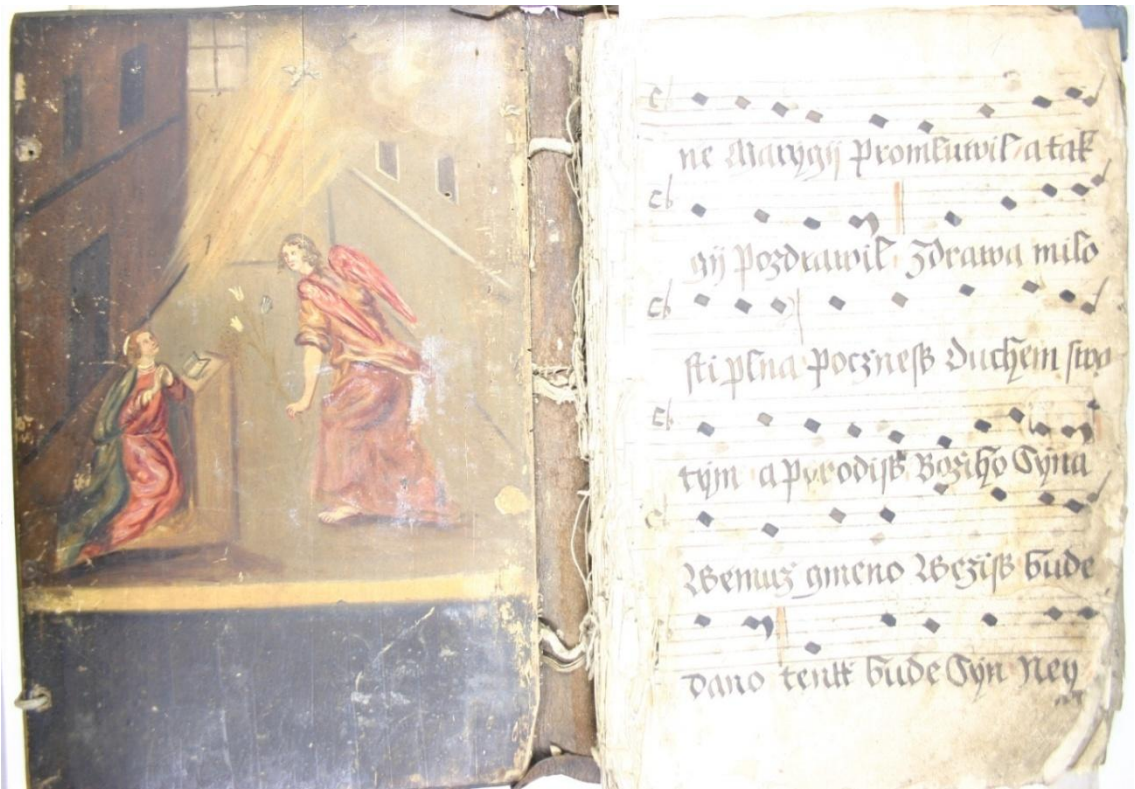 ne Marygij Promluwil a tak
gij Pozdrawil Zdrawa milo
sti plna Poczneß Duchem swa
tým a Porodiß Božiho Syna
Gemuž gmeno Gežiß bude
dano tentt bude Syn Ney